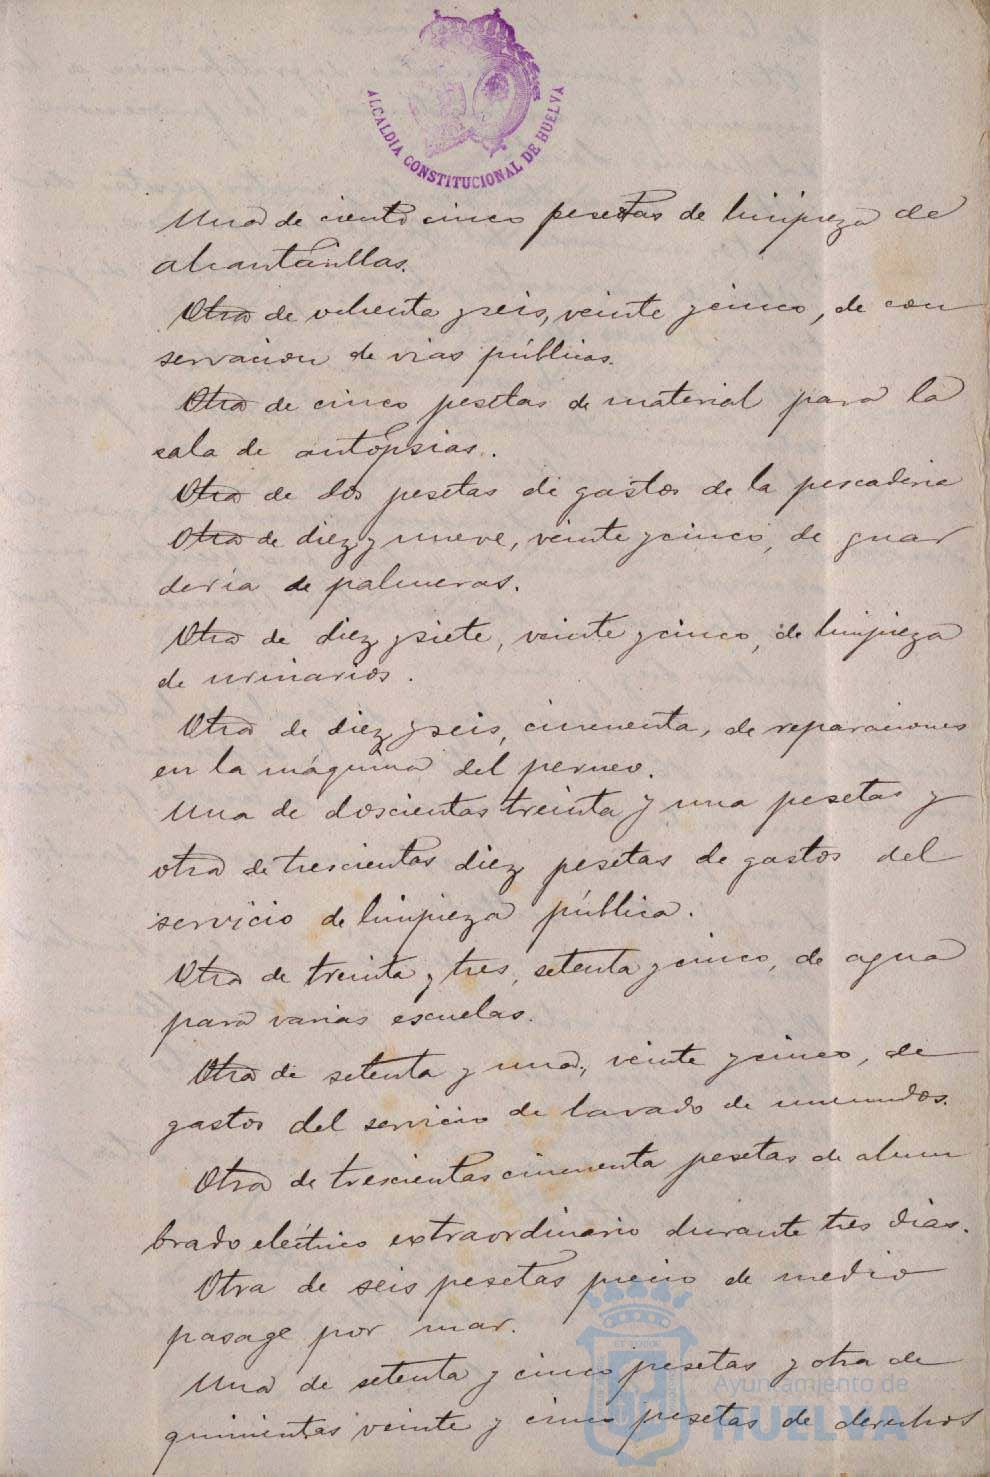 ALCALDIA CONSTITUCIONAL DE HUELVA
Una de ciento cinco pesetas de limpieza de
alcantarillas.
Otra de ochenta y seis, veinte y cinco, de con
servacion de vias públicas.
Otra de cinco pesetas de material para la
sala de autopsias.
Otra de dos pesetas de gastos de la pescaderia
Otra de diez y nueve, veinte y cinco, de guar
deria de palmeras.
Otra de diez y siete, veinte y cinco, de limpieza
de urinarios.
Otra de diez y seis, cincuenta, de reparaciones
en la máquina del perneo.
Una de doscientas treinta y una pesetas y
otra de trescientas diez pesetas de gastos del
servicio de limpieza pública.
Otra de treinta y tres, setenta y cinco, de agua
para varias escuelas.
Otra de setenta y una, veinte y cinco, de
gastos del servicio de lavado de menudos.
Otra de trescientas cincuenta pesetas de alum
brado eléctrico extraordinario durante tres dias.
Otra de seis pesetas precio de medio
pasage por mar.
Una de setenta y cinco pesetas y otra de
quinientas veinte y cinco pesetas de derechos
Ayuntamiento de
HUELVA